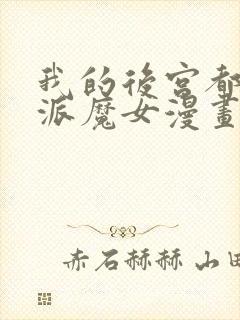 我的後宮都
派魔女漫畫
赤石赫赫 山田